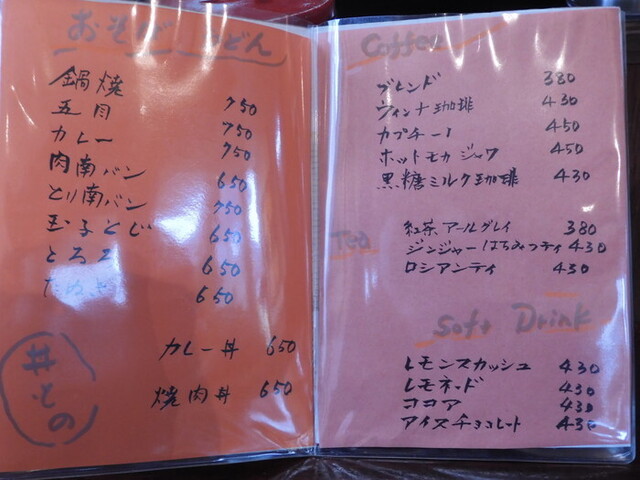 おそば うどん
鍋焼 750
五目 750
カレー 750
肉南バン 650
とり南バン 750
玉子とじ 650
とろろ 650
たぬき 650
丼もの
カレー丼 650
焼肉丼 650
Coffee
ブレンド 380
ウィンナ珈琲 430
カプチーノ 450
ホットモカジャワ 450
黒糖ミルク珈琲 430
Tea
紅茶アールグレイ 380
ジンジャーはちみつティ 430
ロシアンティ 430
Soft Drink
レモンスカッシュ 430
レモネード 430
ココア 430
アイスチョコレート 430